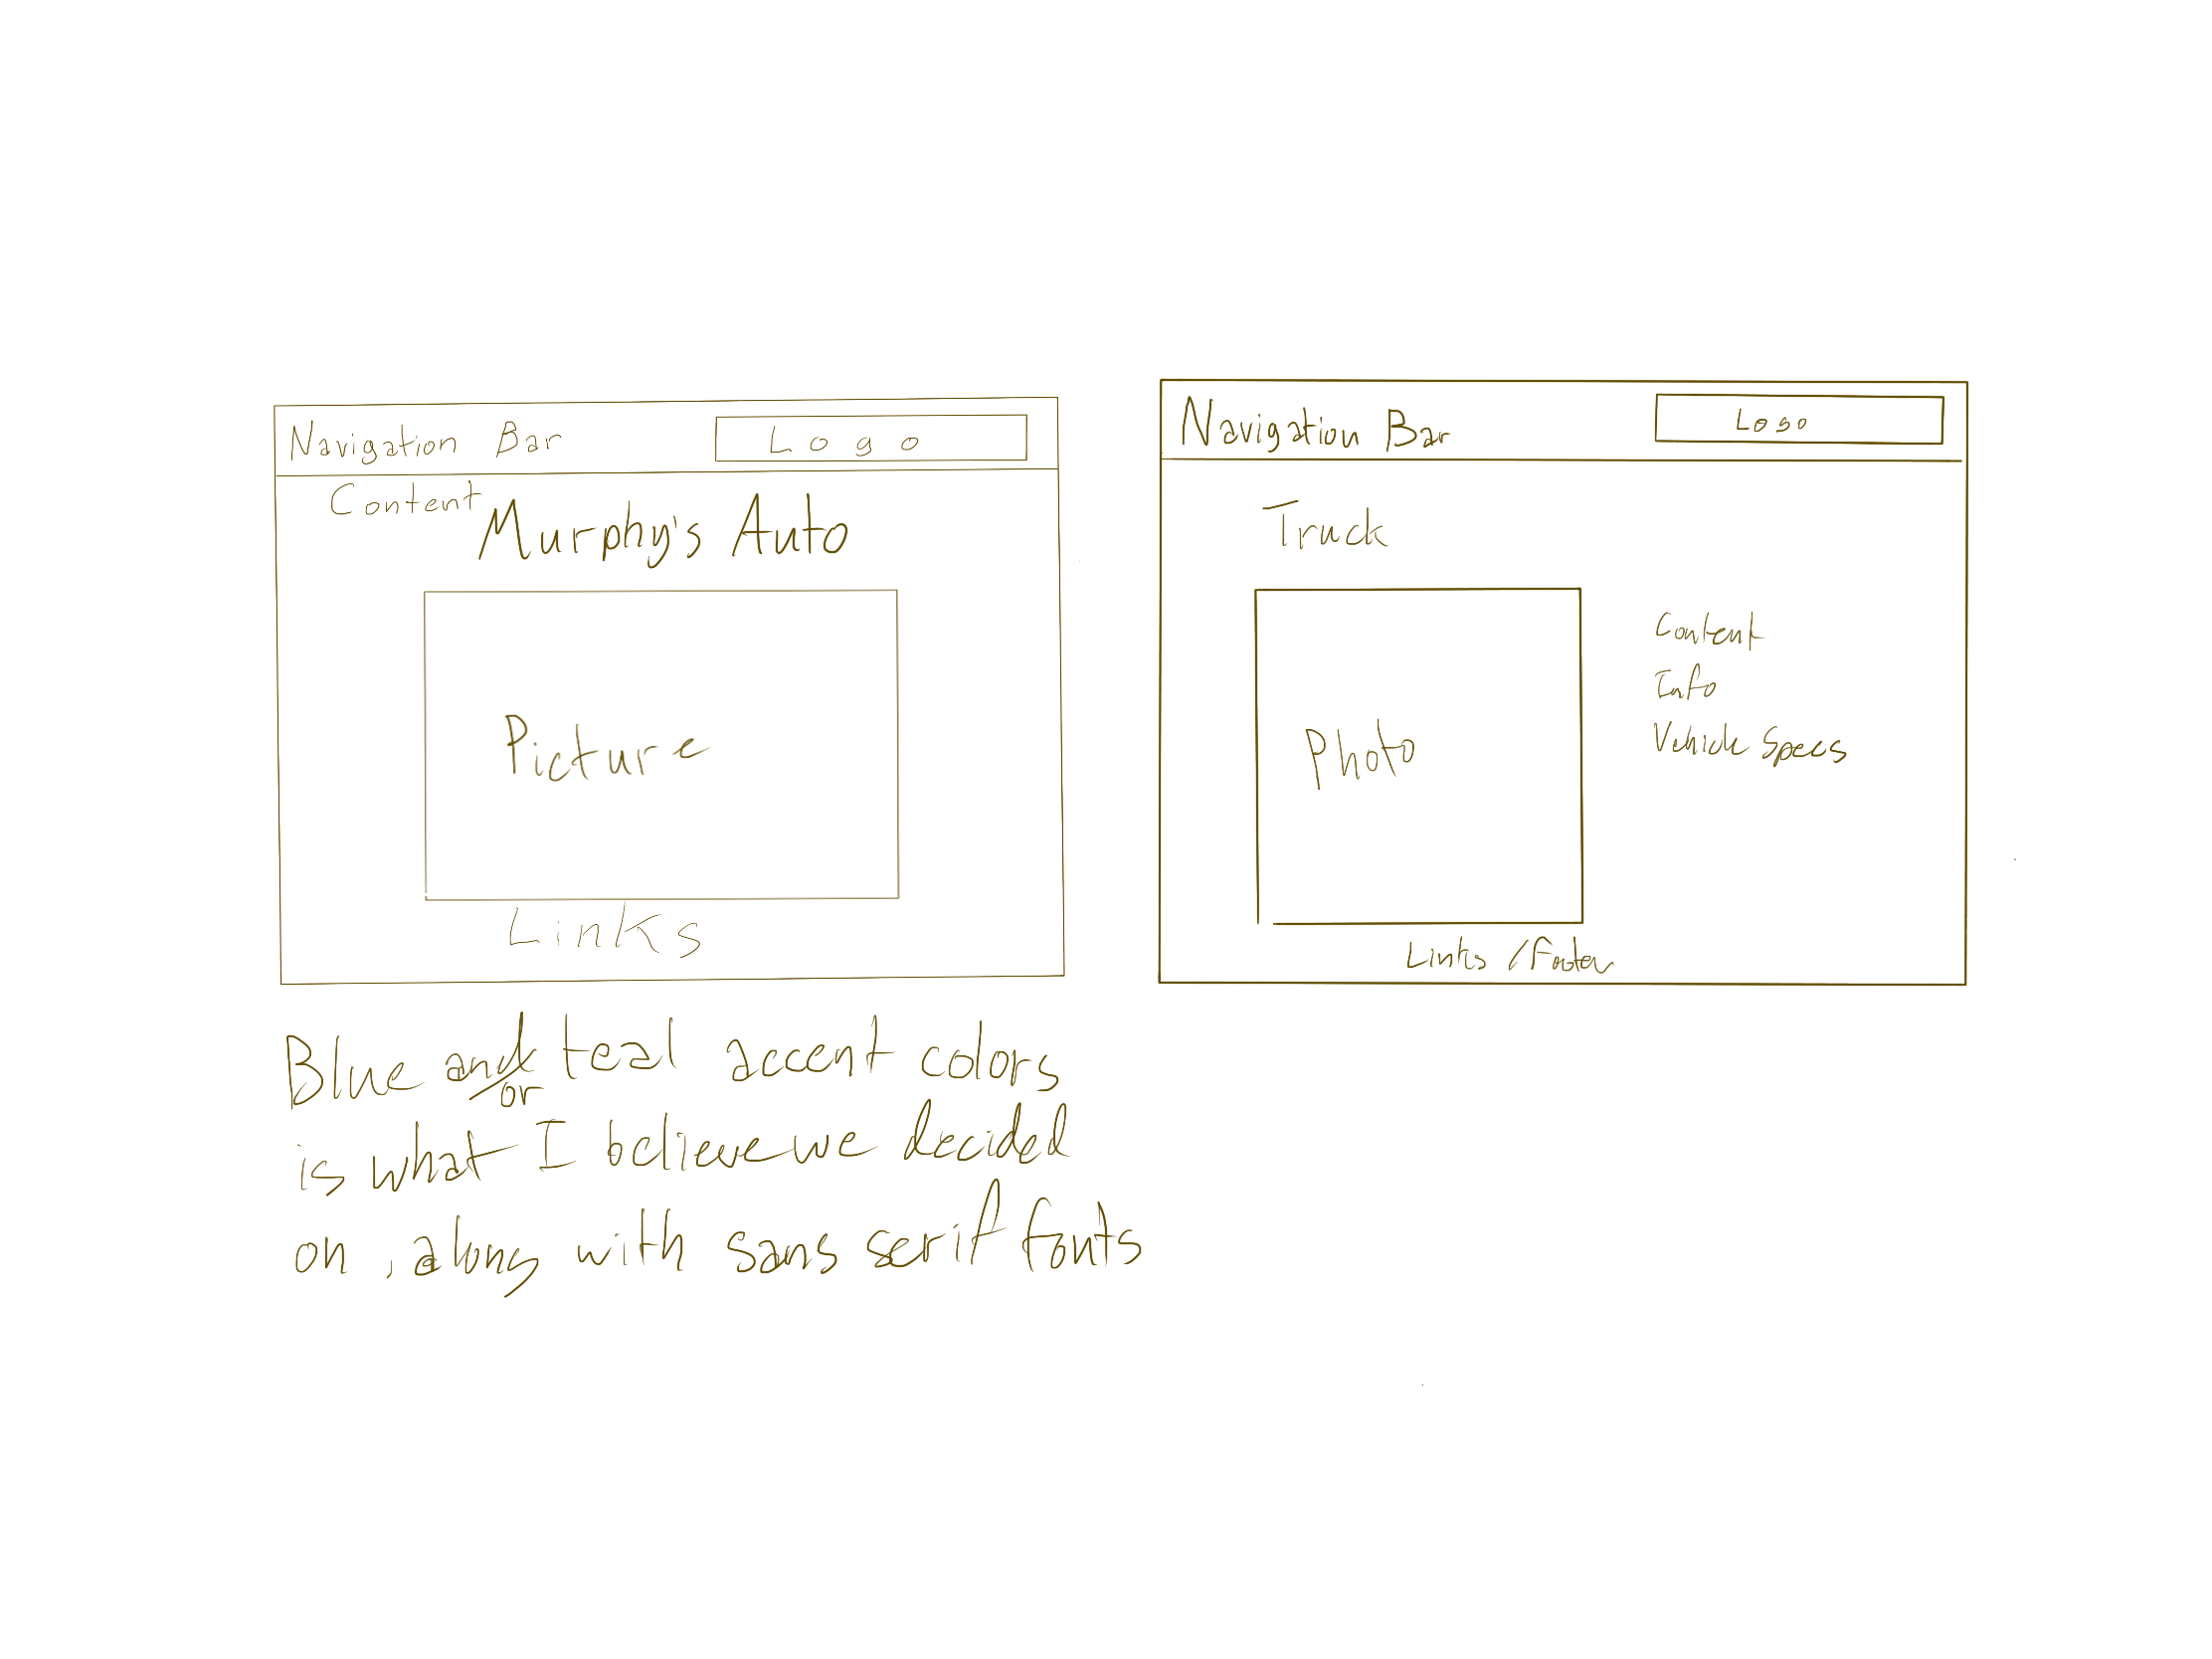 Navigation Bar
Logo
Content
Murphy's Auto
Picture
Links
Navigation Bar
Logo
Truck
Photo
Content
Info
Vehicle Specs
Links / Footer
Blue and/or teal accent colors
is what I believe we decided
on, along with sans serif fonts